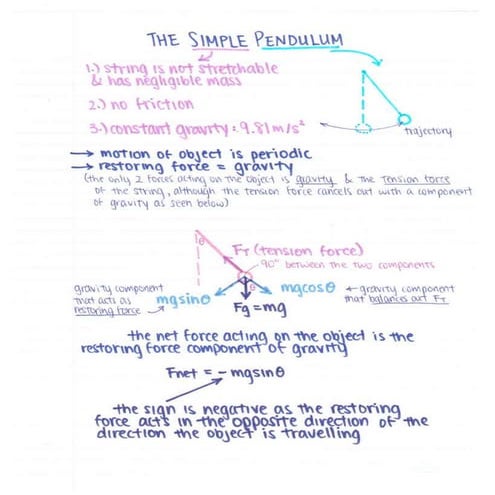 THE SIMPLE PENDULUM
1.) string is not stretchable
& has negligible mass
2.) no friction
3.) constant gravity: 9.81 m/s²
trajectory
→ motion of object is periodic
→ restoring force = gravity
(the only 2 forces acting on the object is gravity & the tension force
of the string, although the tension force cancels out with a component
of gravity as seen below)
θ
FT (tension force)
90° between the two components
gravity component
that acts as
restoring force →
mgsinθ
θ
mgcosθ
← gravity component
that balances out FT
Fg=mg
the net force acting on the object is the
restoring force component of gravity
Fnet = -mgsinθ
the sign is negative as the restoring
force acts in the opposite direction of the
direction the object is travelling